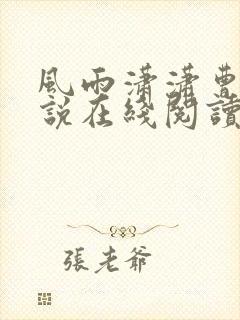 風雨瀟瀟曹
說在綫閱讀
張老爺